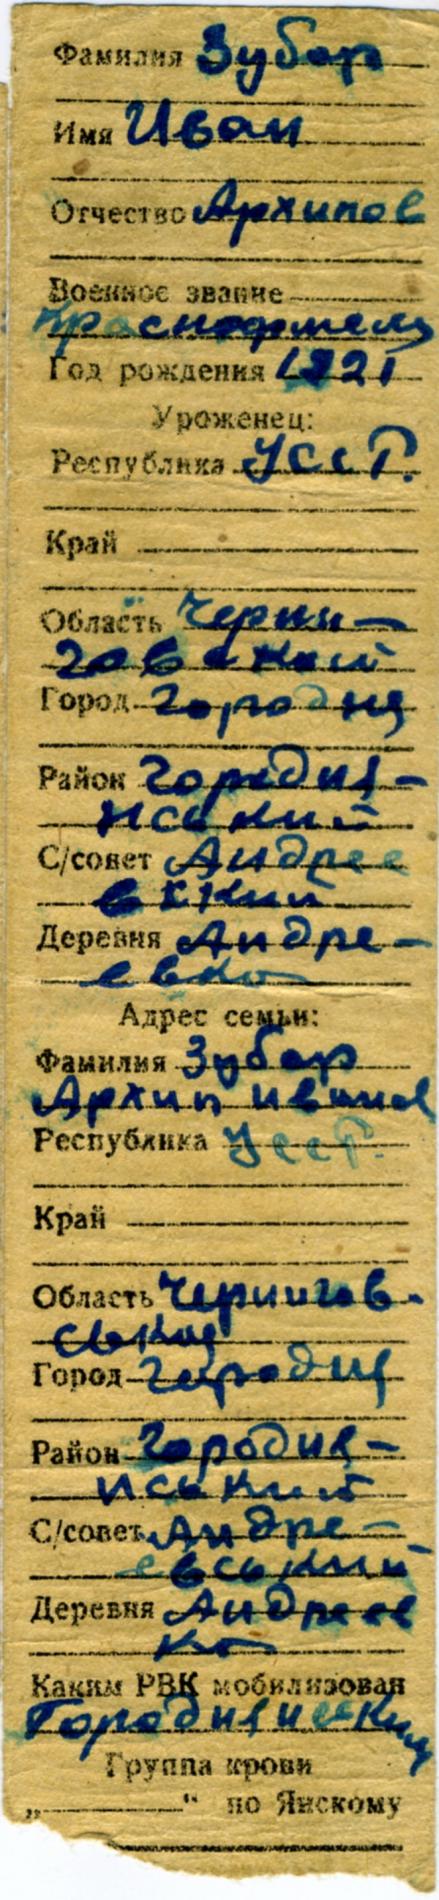 Фамилия Зубар
Имя Иван
Отчество Архипов
Военное звание
Красноармеец
Год рождения 1921
Уроженец:
Республика УССР.
Край
Область Черни-
говский
Город Городня
Район Городня-
нський
С/совет Андрее
вский
Деревня Андре-
евка
Адрес семьи:
Фамилия Зубар
Архип Иванов
Республика УССР.
Край
Область Чернигов-
ськая
Город Городня
Район Городня-
нський
С/совет Андре-
евський
Деревня Андреев
ка
Каким РВК мобилизован
Городнянским
Группа крови
„ “ по Янскому